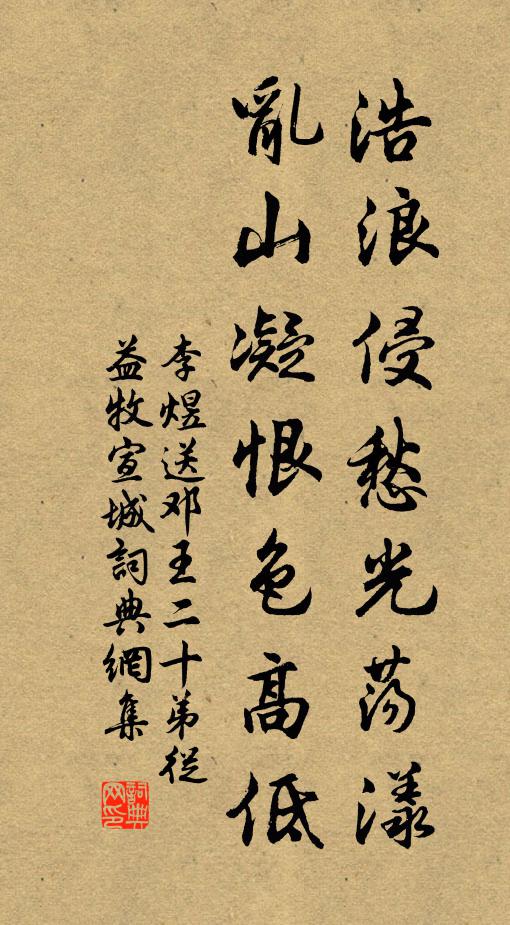 浩浪侵愁光荡漾
亂山凝恨色高低
李煜送邓王二十弟從
益牧宣城詞典網集
詞典
网印